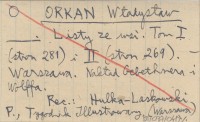 O ORKAN Władysław
____. Listy ze wsi. Tom I
(stron 281) i II (stron 269).
Warszawa. Nakład Gebethnera i
Wolffa.
Rec.: Hulka-Laskowski
P., Tygodnik Illustrowany (Warszawa)